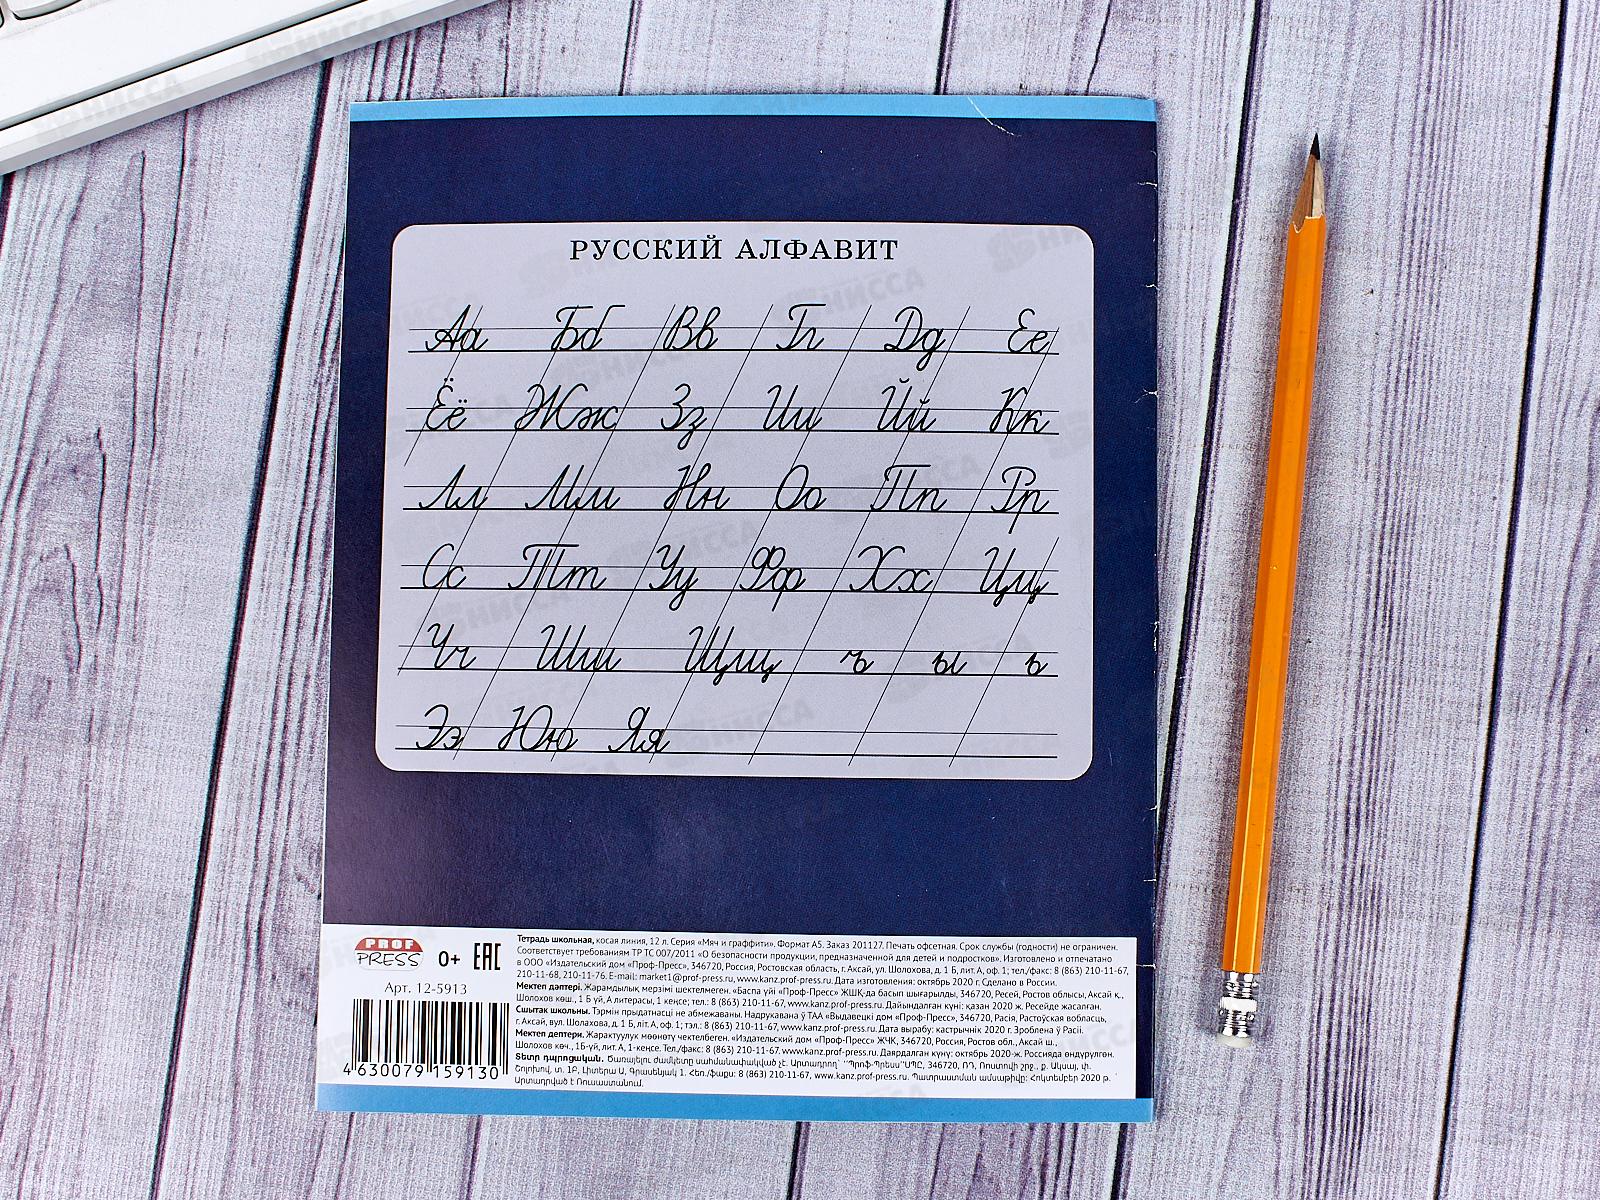 РУССКИЙ АЛФАВИТ
Аа Бб Вв Гг Дд Ее
Ёё Жж Зз Ии Йй Кк
Лл Мм Нн Оо Пп Рр
Сс Тт Уу Фф Хх Цц
Чч Шш Щщ ъ ы ь
Ээ Юю Яя
PROF
PRESS
0+
EAC
Арт. 12-5913
4 630079 159130
Тетрадь школьная, косая линия, 12 л. Серия «Мяч и граффити». Формат А5. Заказ 201127. Печать офсетная. Срок службы (годности) не ограничен.
Соответствует требованиям ТР ТС 007/2011 «О безопасности продукции, предназначенной для детей и подростков». Изготовлено и отпечатано
в ООО «Издательский дом «Проф-Пресс», 346720, Россия, Ростовская область, г. Аксай, ул. Шолохова, д. 1 Б, лит. А, оф. 1; тел./факс: 8 (863) 210-11-67,
210-11-68, 210-11-76. E-mail: market1@prof-press.ru, www.kanz.prof-press.ru. Дата изготовления: октябрь 2020 г. Сделано в России.
Мектеп дәптері. Жарамдылық мерзімі шектелмеген. «Баспа үйі «Проф-Пресс» ЖШҚ-да басып шығарылды, 346720, Ресей, Ростов облысы, Аксай қ.,
Шолохов көш., 1 Б үй, А литерасы, 1 кеңсе; тел.: 8 (863) 210-11-67, www.kanz.prof-press.ru. Дайындалған күні: қазан 2020 ж. Ресейде жасалған.
Сшытак школьны. Тэрмін прыдатнасці не абмежаваны. Надрукавана ў ТАА «Выдавецкі дом «Проф-Пресс», 346720, Расія, Растоўская вобласць,
г. Аксай, вул. Шолахова, д. 1 Б, літ. А, оф. 1; тэл.: 8 (863) 210-11-67, www.kanz.prof-press.ru. Дата вырабу: кастрычнік 2020 г. Зроблена ў Расіі.
Мектеп дептери. Жарактуулук мөөнөтү чектелбеген. «Издательский дом «Проф-Пресс» ЖЧК, 346720, Россия, Ростов обл., Аксай ш.,
Шолохов көч., 1Б-үй, лит. А, 1-кеңсе. Тел./факс: 8 (863) 210-11-67. www.kanz.prof-press.ru. Даярдалган күнү: октябрь 2020-ж. Россияда өндүрүлгөн.
Տետր դպրոցական. Ծառայելու ժամկետը սահմանափակված չէ. Արտադրող՝ "Պրոֆ-Պրեսս" ՍՊԸ, 346720, ՌԴ, Ռոստովի շրջ., ք. Ակսայ, փ.
Շոլոխով, տ. 1Բ, Լիտերա Ա, Գրասենյակ 1. Հեռ./ֆաքս: 8 (863) 210-11-67, www.kanz.prof-press.ru. Պատրաստման ամսաթիվը: Հոկտեմբեր 2020 թ.
Արտադրված է Ռուսաստանում.
НИССА